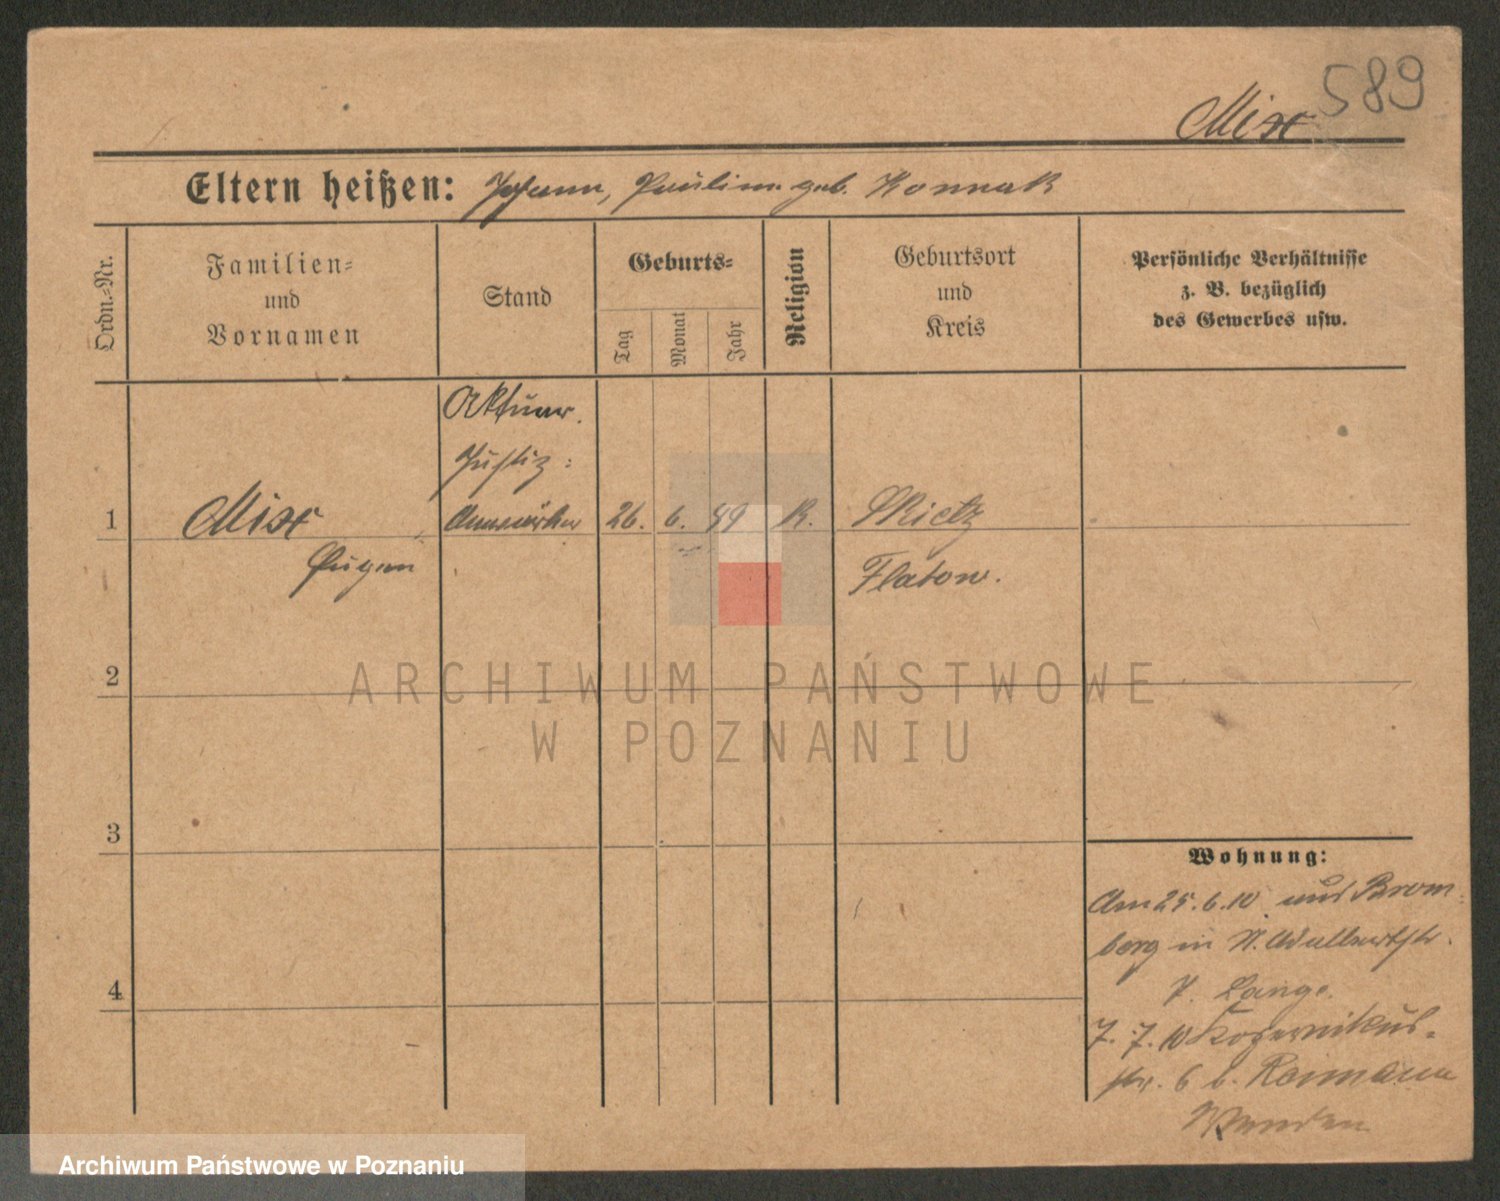 589
Mix
Eltern heißen: Johann, Pauline geb. Konnak
Ordn.-Nr.
Familien-
und
Vornamen
Stand
Geburts-
Tag
Monat
Jahr
Religion
Geburtsort
und
Kreis
Persönliche Verhältnisse
z. B. bezüglich
des Gewerbes usw.
Aktuar.
Justiz-
1 Mix Anwärter 26. 6. 89 K. Skietz
Eugen Flatow.
2
3
4
Wohnung:
Am 25.6.10 Brom-
berg in
Lange.
7.7.10 Kopernikus-
str. 6 b.
ARCHIWUM PAŃSTWOWE
W POZNANIU
Archiwum Państwowe w Poznaniu